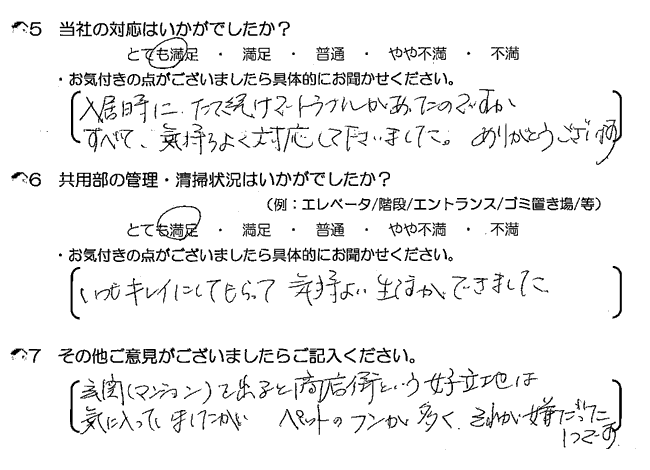 5 当社の対応はいかがでしたか？
とても満足 ・ 満足 ・ 普通 ・ やや不満 ・ 不満
・お気付きの点がございましたら具体的にお聞かせください。
入居時に、たて続けでトラブルがあったのですが
すべて、気持ちよく対応して下さいました。 ありがとうござい
6 共用部の管理・清掃状況はいかがでしたか？
（例：エレベータ/階段/エントランス/ゴミ置き場/等）
とても満足 ・ 満足 ・ 普通 ・ やや不満 ・ 不満
・お気付きの点がございましたら具体的にお聞かせください。
いつもキレイにしてもらって 気持よい生活ができました
7 その他ご意見がございましたらご記入ください。
玄関（マンション）を出ると商店街という好立地は
気に入っていましたが ペットのフンが多く、それが嫌だった
1つです